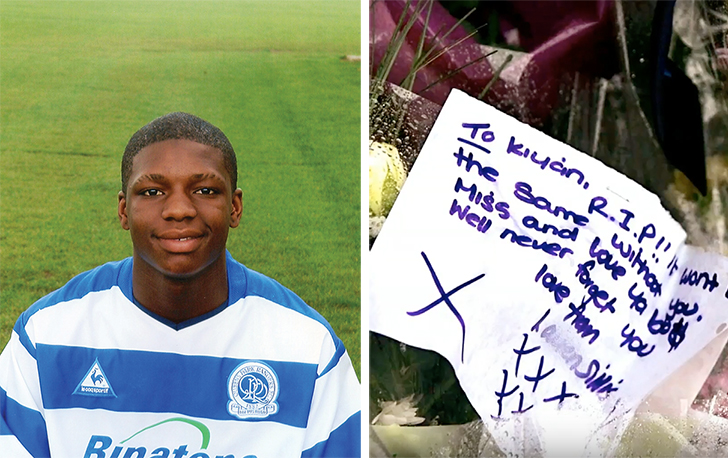 le coq sportif
Binatone
To kiyan, R.I.P!! It wont
the same without you.
Miss and love ya
Well never forget you
love from
X
x x x
x x